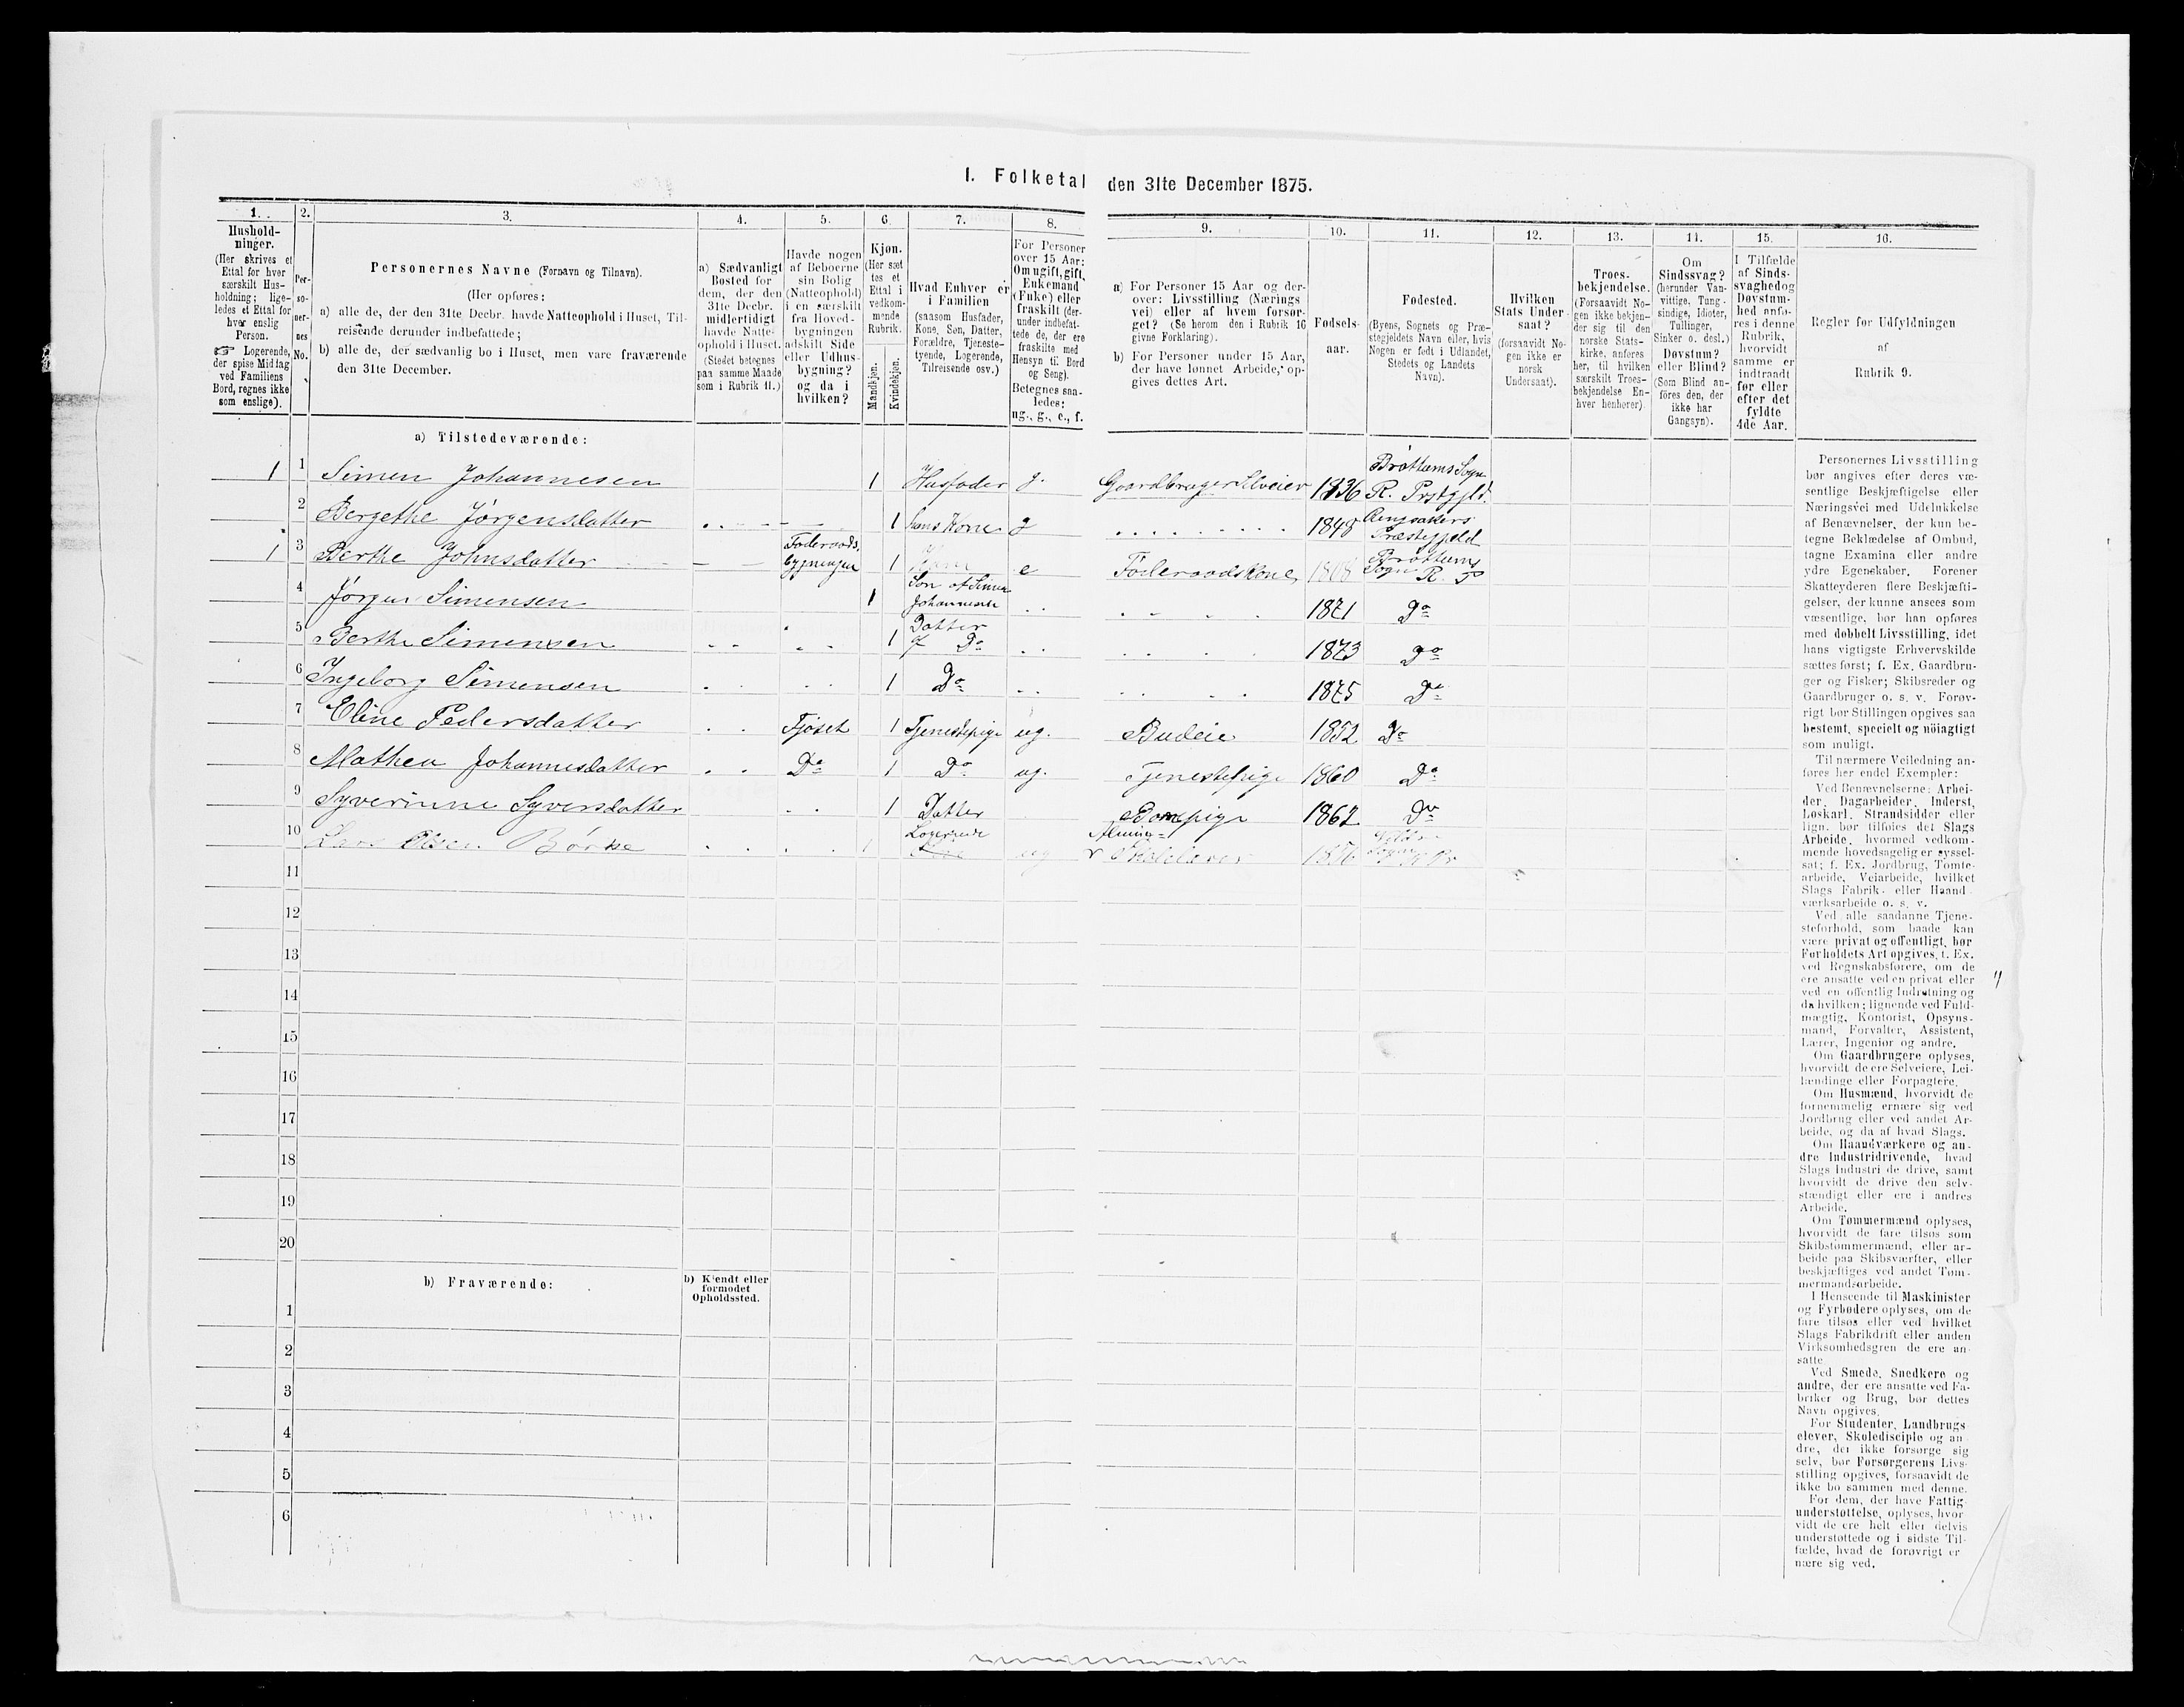 I. Folketal den 31te December 1875.
1. 2. 3. 4. 5. 6. 7. 8. 9. 10. 11. 12. 13. 14. 15. 16.
Hushold-
ninger.
(Her skrives et
Ettal for hver
særskilt Hus-
holdning; lige-
ledes et Ettal for
hver enslig
Person.
☞ Logerende,
der spise Middag
ved Familiens
Bord, regnes ikke
som enslige).
Per-
so-
ner-
nes
No.
Personernes Navne (Fornavn og Tilnavn).
(Her opføres:
a) alle de, der den 31te Decbr. havde Natteophold i Huset, Til-
reisende derunder indbefattede;
b) alle de, der sædvanlig bo i Huset, men vare fraværende
den 31te December.
a) Sædvanligt
Bosted for
dem, der den
31te Decbr.
midlertidigt
havde Natte-
ophold i Huset.
(Stedet betegnes
paa samme Maade
som i Rubrik 11.)
Havde nogen
af Beboerne
sin Bolig
(Natteophold)
i en særskilt
fra Hoved-
bygningen
adskilt Side
eller Udhus-
bygning?
og da i
hvilken?
Kjøn.
(Her sæt
tes et
Ettal i
vedkom-
mende
Rubrik.
Mandkjøn.
Kvindekjøn.
Hvad Enhver er
i Familien
(saasom Husfader,
Kone, Søn, Datter,
Forældre, Tjeneste-
tyende, Logerende,
Tilreisende osv.)
For Personer
over 15 Aar:
Om ugift, gift,
Enkemand
(Enke) eller
fraskilt (der-
under indbefat-
tede de, der ere
fraskilte med
Hensyn til Bord
og Seng).
Betegnes saa-
ledes:
ug., g., e., f.
a) For Personer 15 Aar og der-
over: Livsstilling (Nærings
vei) eller af hvem forsør-
get? (Se herom den i Rubrik 16
givne Forklaring).
b) For Personer under 15 Aar,
der have lønnet Arbeide, op-
gives dettes Art.
Fødsels-
aar.
Fødested.
(Byens, Sognets og Præ-
stegjeldets Navn eller, hvis
Nogen er født i Udlandet,
Stedets og Landets
Navn).
Hvilken
Stats Under-
saat?
(forsaavidt No-
gen ikke er
norsk
Undersaat).
Troes-
bekjendelse.
(Forsaavidt No-
gen ikke bekjen-
der sig til den
norske Stats-
kirke, anføres
her, til hvilken
særskilt Troes-
bekjendelse En-
hver henhører).
Om
Sindssvag?
(herunder Van-
vittige, Tung-
sindige, Idioter,
Tullinger,
Sinker o. desl.)
Døvstum?
eller Blind?
(Som Blind an-
føres den, der
ikke har
Gangsyn).
I Tilfælde
af Sinds-
svaghed og
Døvstum-
hed anfø-
res i denne
Rubrik,
hvorvidt
samme er
indtraadt
før eller
efter det
fyldte
4de Aar.
Regler for Udfyldningen
af
Rubrik 9.
a) Tilstedeværende:
1 1 Simen Johannesen 1 Husfader g. Gaardbruger Selveier 1836 Brøttums Sogn R. Prstgjld.
2 Bergethe Jørgensdatter 1 hans Kone g 1848 Ringsakers Præstegjeld
1 3 Berthe Johnsdatter Føderaads bygningen 1 e Føderaadskone 1808 Brøttums Sogn R. P
4 Jørgen Simensen 1 Søn af Simen Johannesen 1871 Do
5 Berthe Simensen 1 Datter af Do 1873 Do
6 Ingeborg Simensen 1 Do 1875 Do
7 Eline Pedersdatter Fjøset 1 Tjenestepige ug. Budeie 1852 Do
8 Mathea Johannesdatter Do 1 Do ug. Tjenestepige 1860 Do
9 Syverinne Syversdatter 1 Datter Barnepige 1862 Do
10 Lars Olsen Børke 1 Logerende ug Skolelærer
11
12
13
14
15
16
17
18
19
20
b) Fraværende:
b) Kjendt eller
formodet
Opholdssted.
1
2
3
4
5
6
Personernes Livsstilling
bør angives efter deres væ-
sentlige Beskjæftigelse eller
Næringsvei med Udelukkelse
af Benævnelser, der kun be-
tegne Beklædelse af Ombud,
tagne Examina eller andre
ydre Egenskaber. Forener
Skatteyderen flere Beskjæfti-
gelser, der kunne ansees som
væsentlige, bør han opføres
med dobbelt Livsstilling, idet
hans vigtigste Erhvervskilde
sættes først; f. Ex. Gaardbru-
ger og Fisker; Skibsreder og
Gaardbruger o. s. v. Forøv-
rigt bør Stillingen opgives saa
bestemt, specielt og nöiagtigt
som muligt.
Til nærmere Veiledning an-
føres her endel Exempler:
Ved Benævnelserne: Arbei-
der, Dagarbeider, Inderst,
Løskarl, Strandsidder eller
lign. bør tilføies det Slags
Arbeide, hvormed vedkom-
mende hovedsagelig er syssel-
sat; f. Ex. Jordbrug, Tomte-
arbeide, Veiarbeide, hvilket
Slags Fabrik- eller Haand-
værksarbeide o. s. v.
Ved alle saadanne Tjene-
steforhold, som baade kan
være privat og offentligt, bør
Forholdets Art opgives, f. Ex.
ved Regnskabsførere, om de
ere ansatte ved en privat eller
ved en offentlig Indretning og
da hvilken; lignende ved Fuld-
mægtig, Kontorist, Opsyns-
mand, Forvalter, Assistent,
Lærer, Ingeniør og andre.
Om Gaardbrugere oplyses,
hvorvidt de ere Selveiere, Lei-
lændinge eller Forpagtere.
Om Husmænd, hvorvidt de
fornemmelig ernære sig ved
Jordbrug eller ved andet Ar-
beide, og da af hvad Slags.
Om Haandværkere og an-
dre Industridrivende, hvad
Slags Industri de drive, samt
hvorvidt de drive den selv-
stændigt eller ere i andres
Arbeide.
Om Tømmermænd oplyses,
hvorvidt de fare tilsøs som
Skibstømmermænd, eller ar-
beide paa Skibsværfter, eller
beskjæftiges ved andet Tøm-
mermandsarbeide.
I Henseende til Maskinister
og Fyrbødere oplyses, om de
fare tilsøs eller ved hvilket
Slags Fabrikdrift eller anden
Virksomhedsgren de ere an-
satte
Ved Smede, Snedkere og
andre, der ere ansatte ved Fa-
briker og Brug, bør dettes
Navn opgives.
For Studenter, Landbrugs-
elever, Skoledisciple og an-
dre, der ikke forsørge sig
selv, bør Forsørgerens Livs-
stilling opgives, forsaavidt de
ikke bo sammen med denne.
For dem, der have Fattig-
understøttelse, oplyses, hvor
vidt de ere helt eller delvis
understøttede og i sidste Til-
fælde, hvad de forøvrigt er
nære sig ved.